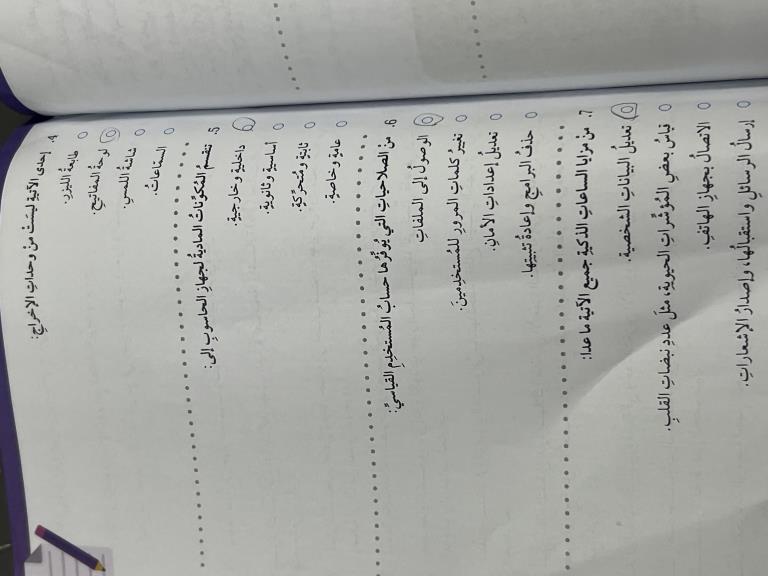 4. إحدى الآتيةِ ليسَتْ من وحداتِ الإخراجِ:
طابعةُ الليزرِ.
لوحةُ المفاتيحِ.
شاشةُ اللمسِ.
السمّاعاتُ.
5. تقسمُ المُكوِّناتُ الماديةُ لجهازِ الحاسوبِ إلى:
داخليةٍ وخارجيةٍ.
أساسيةٍ وثانويةٍ.
ثابتةٍ ومُتحرِّكةٍ.
عامةٍ وخاصةٍ.
6. منَ الصلاحياتِ التي يُوفِّرُها حسابُ المُستخدِمِ القياسيِّ:
الوصولُ إلى الملفاتِ
تغييرُ كلماتِ المرورِ للمُستخدِمينَ.
تعديلُ إعداداتِ الأمانِ.
حذفُ البرامجِ وإعادةُ تثبيتِها.
7. من مزايا الساعاتِ الذكيةِ جميعُ الآتيةِ ما عدا:
تعديلُ البياناتِ الشخصيةِ.
قياسُ بعضِ المُؤشِّراتِ الحيويةِ، مثلَ عددِ نبضاتِ القلبِ.
الاتصالُ بجهازِ الهاتفِ.
إرسالُ الرسائلِ واستقبالُها، وإصدارُ الإشعاراتِ.